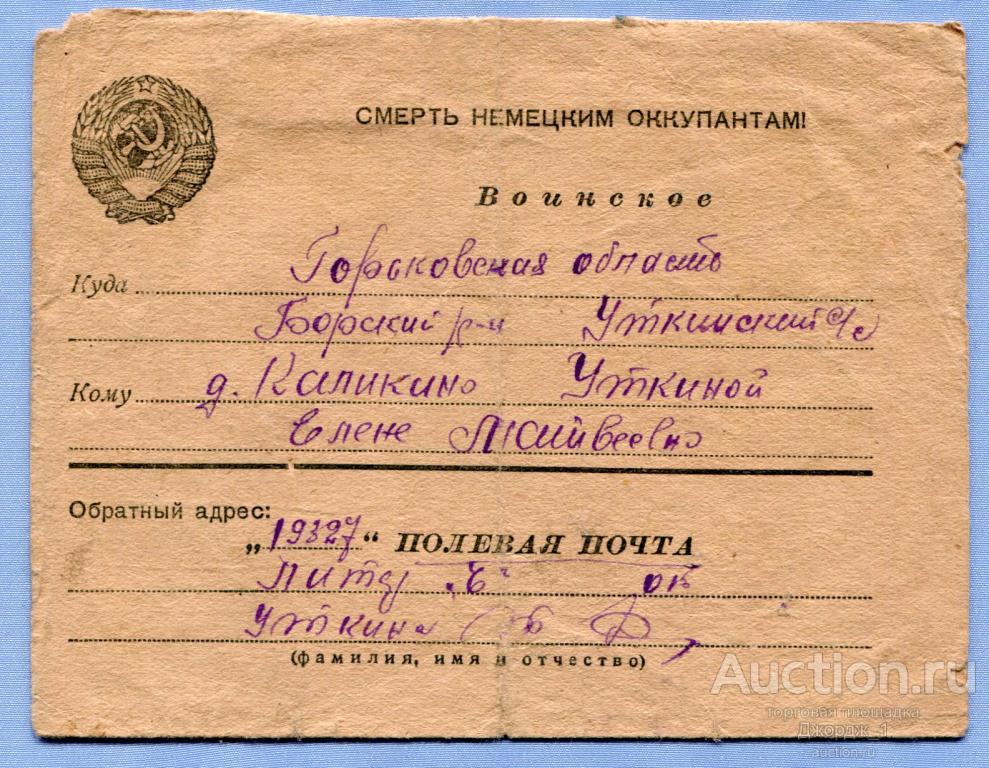 СМЕРТЬ НЕМЕЦКИМ ОККУПАНТАМ!
Воинское
Куда Горьковская область
Борский р-н Уткинский с/с
Кому д. Каликино Уткиной
Елене Матвеевно
Обратный адрес:
„19327“ ПОЛЕВАЯ ПОЧТА
Литер от
Уткина
(фамилия, имя и отчество)
Auction.ru
торговая площадка
Джордж_1
auction.ru